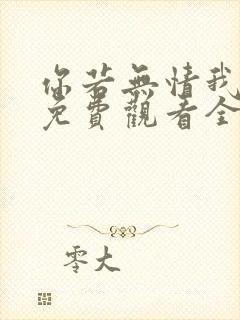 你若無情我
免費觀看全
零大